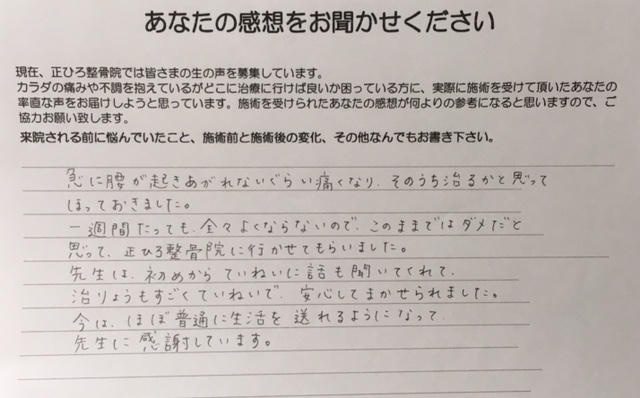 あなたの感想をお聞かせください
現在、正ひろ整骨院では皆さまの生の声を募集しています。
カラダの痛みや不調を抱えているがどこに治療に行けば良いか困っている方に、実際に施術を受けて頂いたあなたの
率直な声をお届けしようと思っています。施術を受けられたあなたの感想が何よりの参考になると思いますので、ご
協力お願い致します。
来院される前に悩んでいたこと、施術前と施術後の変化、その他なんでもお書き下さい。
急に腰が起きあがれないぐらい痛くなり、そのうち治るかと思って
ほっておきました。
一週間たっても、全々よくならないので、このままではダメだと
思って、正ひろ整骨院に行かせてもらいました。
先生は、初めからていねいに話も聞いてくれて、
治りょうもすごくていねいで、安心してまかせられました。
今は、ほぼ普通に生活を送れるようになって
先生に感謝しています。